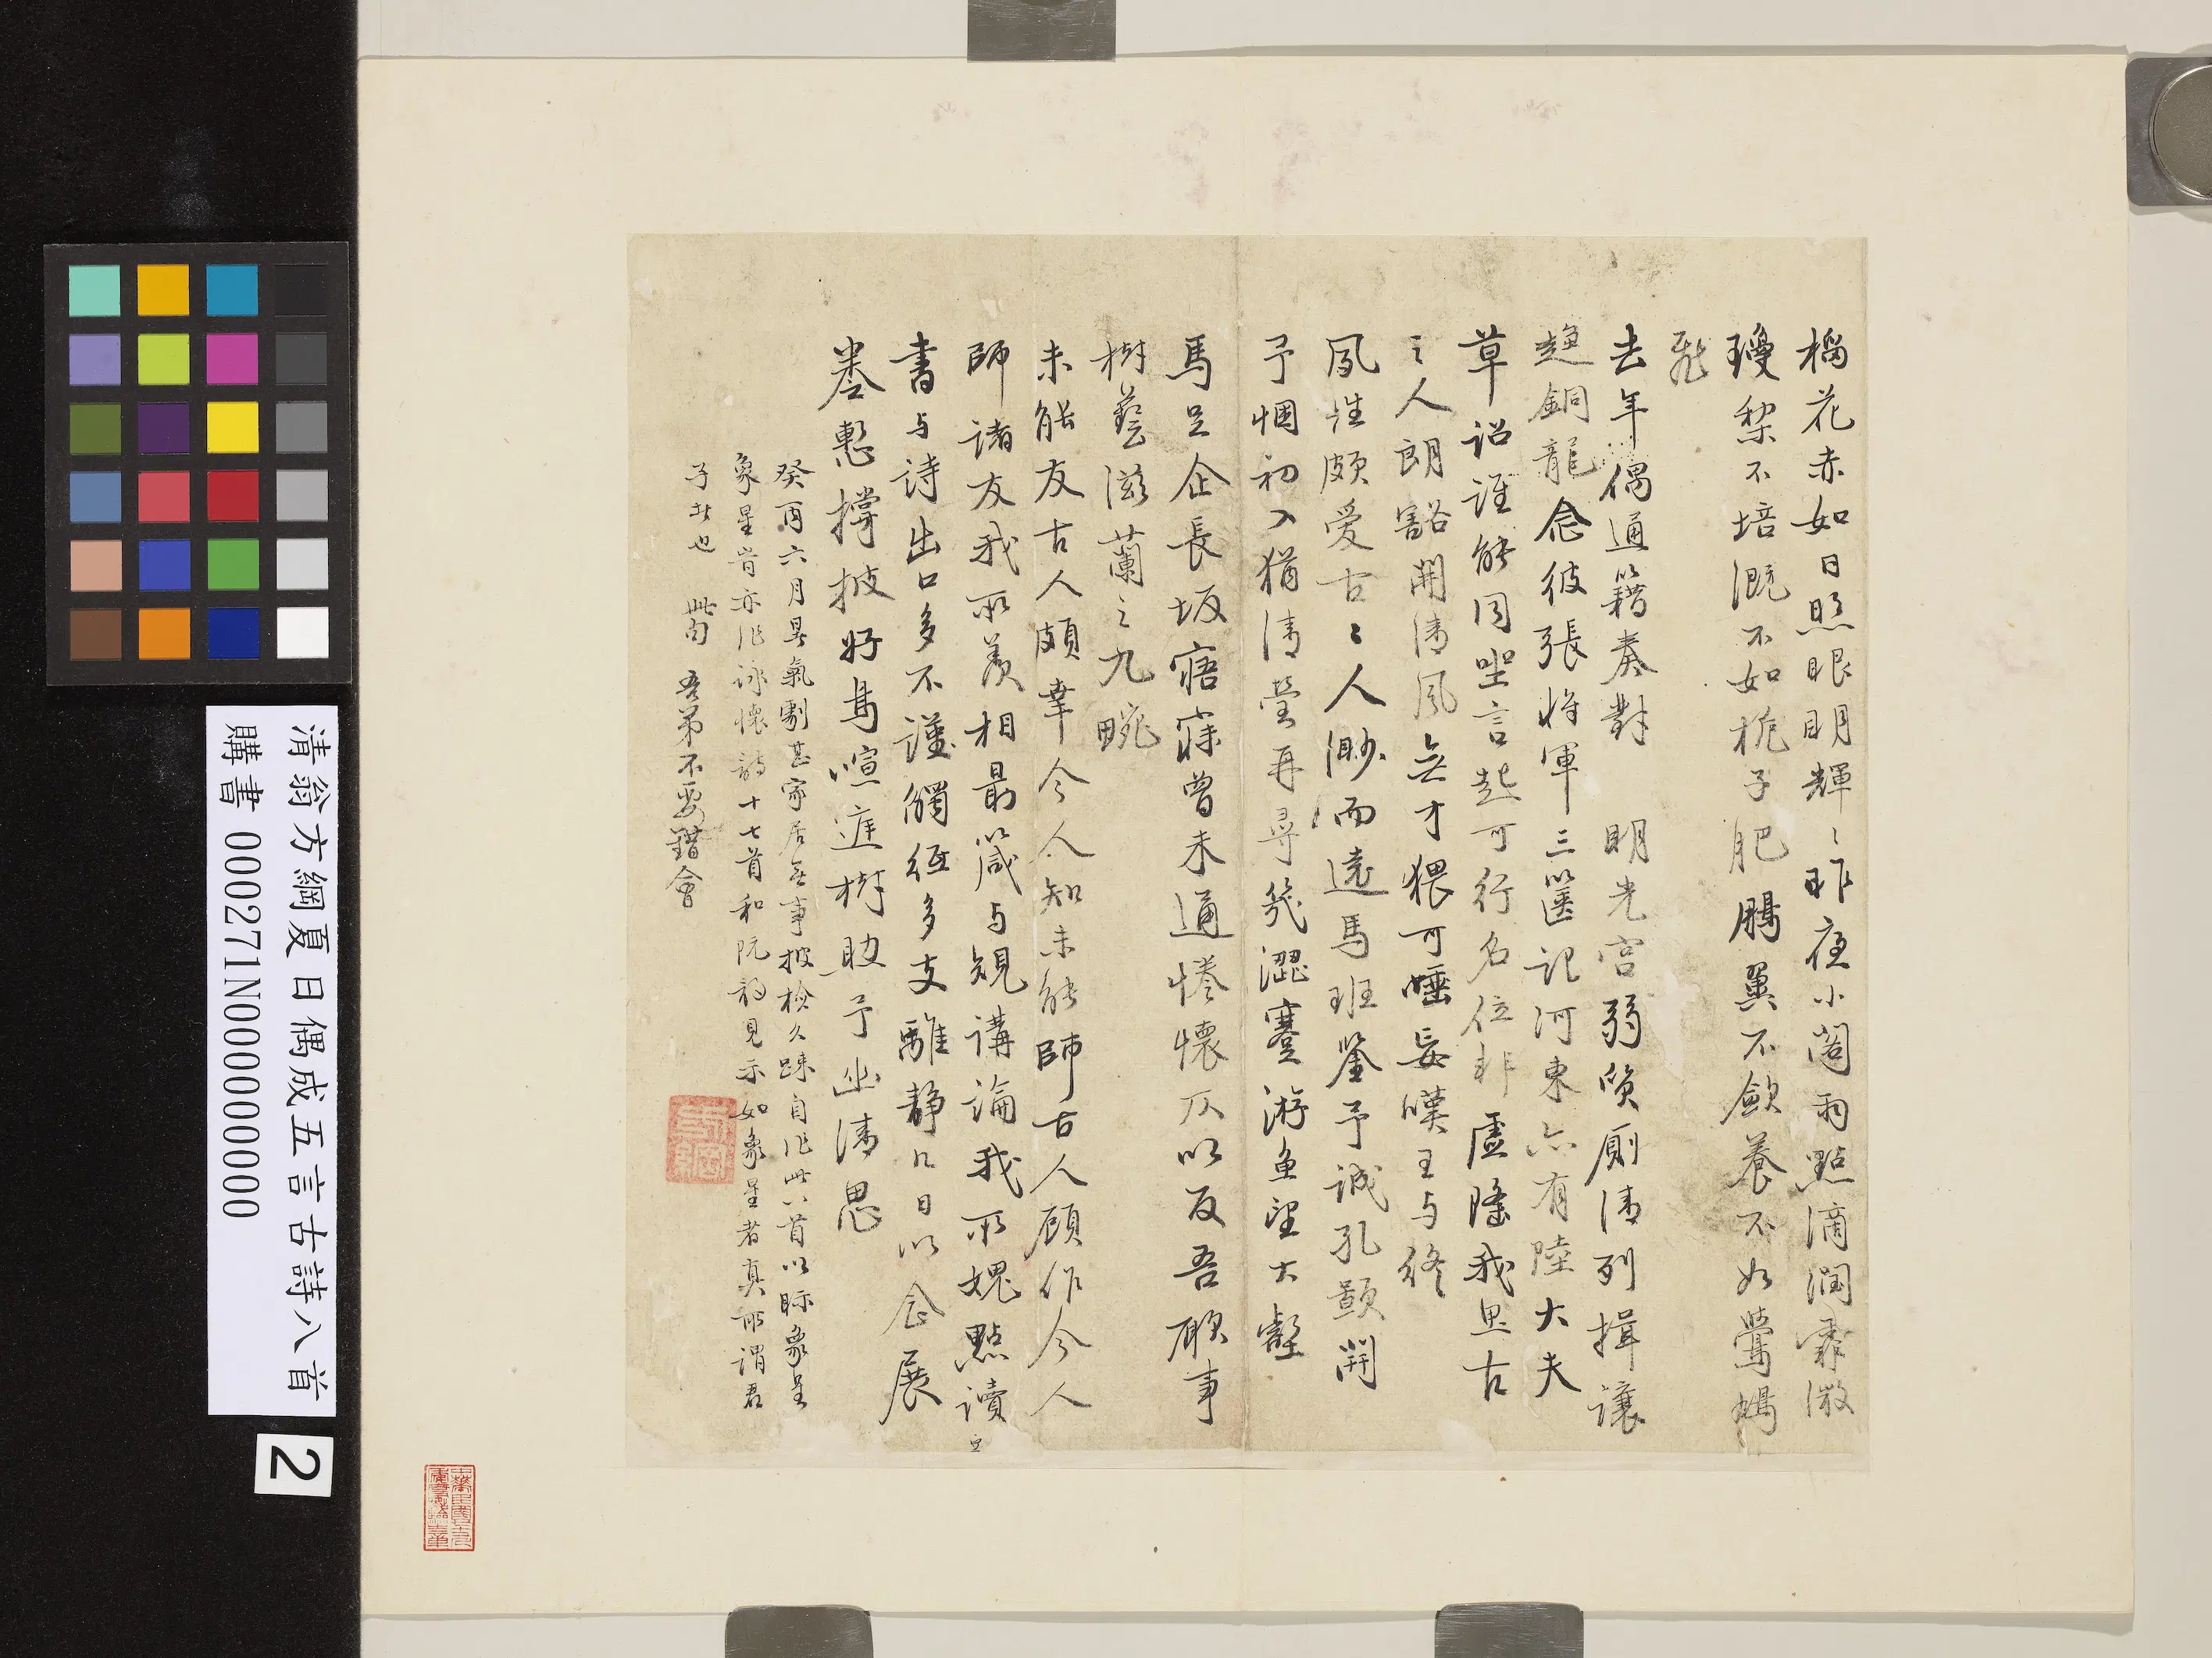 榴花赤如日照眼明輝〻昨夜小閣雨點滴潤霏微
瓊槃不培溉不如梔子肥鵬翼不斂養不如鶯鳩
飛
去年偶通籍奏對 明光宮弱質廁清列揖讓
趨銅龍念彼張將軍三篋記河東亦有陸大夫
草詔誰能同坐言起可行名位非虛隆我思古
之人朗豁開清風無才猥可唾妄嘆王与終
夙性頗愛古〻人渺而遠馬班鑒予誠孔顥開
予悃初入猶清瑩再尋幾澀蹇游魚望大壑
馬足企長坂寤寐曾未通惓懷仄以反吾願事
樹藝滋蘭之九畹
未能友古人頗幸今人知未能師古人願作今人
師諸友我所羨相最箴与規講論我所媿點讀
書与詩出口多不謹觸
多支離靜
日以
念展
卷慙撐披好鳥喧庭樹助予幽清思
癸酉六月暑氣劇甚家居無事披檢久疎自作此八首以眎象星
象星昔亦作詠懷詩十七首和阮詩見示如象星者真所謂君
子者也 此句 吾弟不要錯會
清翁方綱夏日偶成五言古詩八首
購書 000271N000000000
2